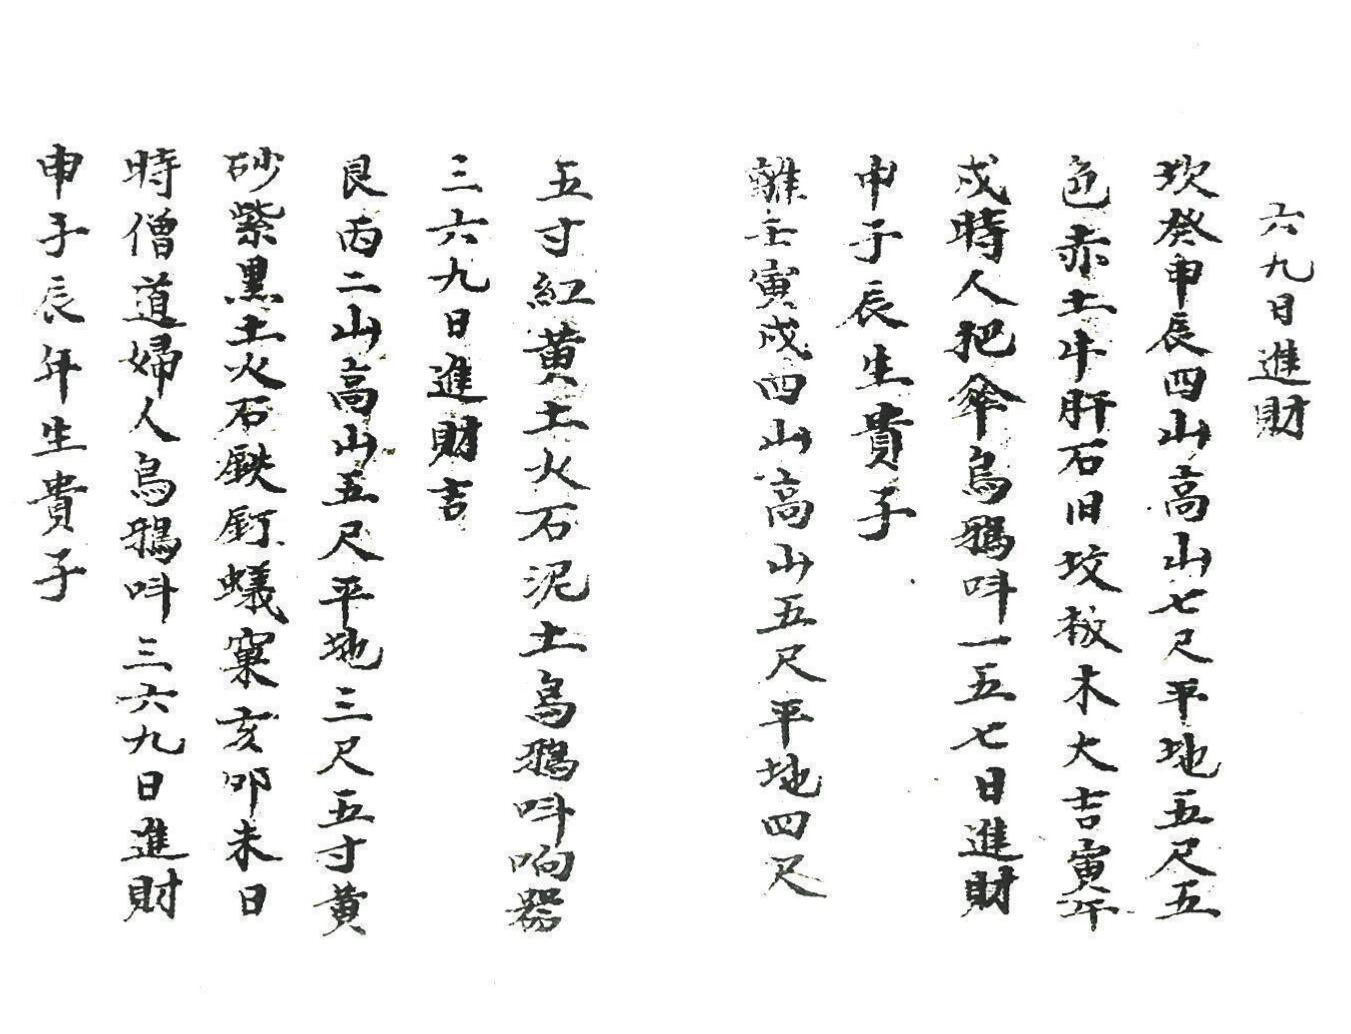 六九日進財
坎癸申辰四山高山七尺平地五尺五
色赤土牛肝石旧坟板木大吉寅午
戍時人把傘烏鴉呌一五七日進財
申子辰生貴子
離壬寅戍四山高山五尺平地四尺
五寸紅黄土火石泥土烏鴉呌响器
三六九日進財吉
艮丙二山高山五尺平地三尺五寸黄
砂紫黒土火石鉄釘蟻窠亥卯未日
時僧道婦人烏鴉呌三六九日進財
申子辰年生貴子